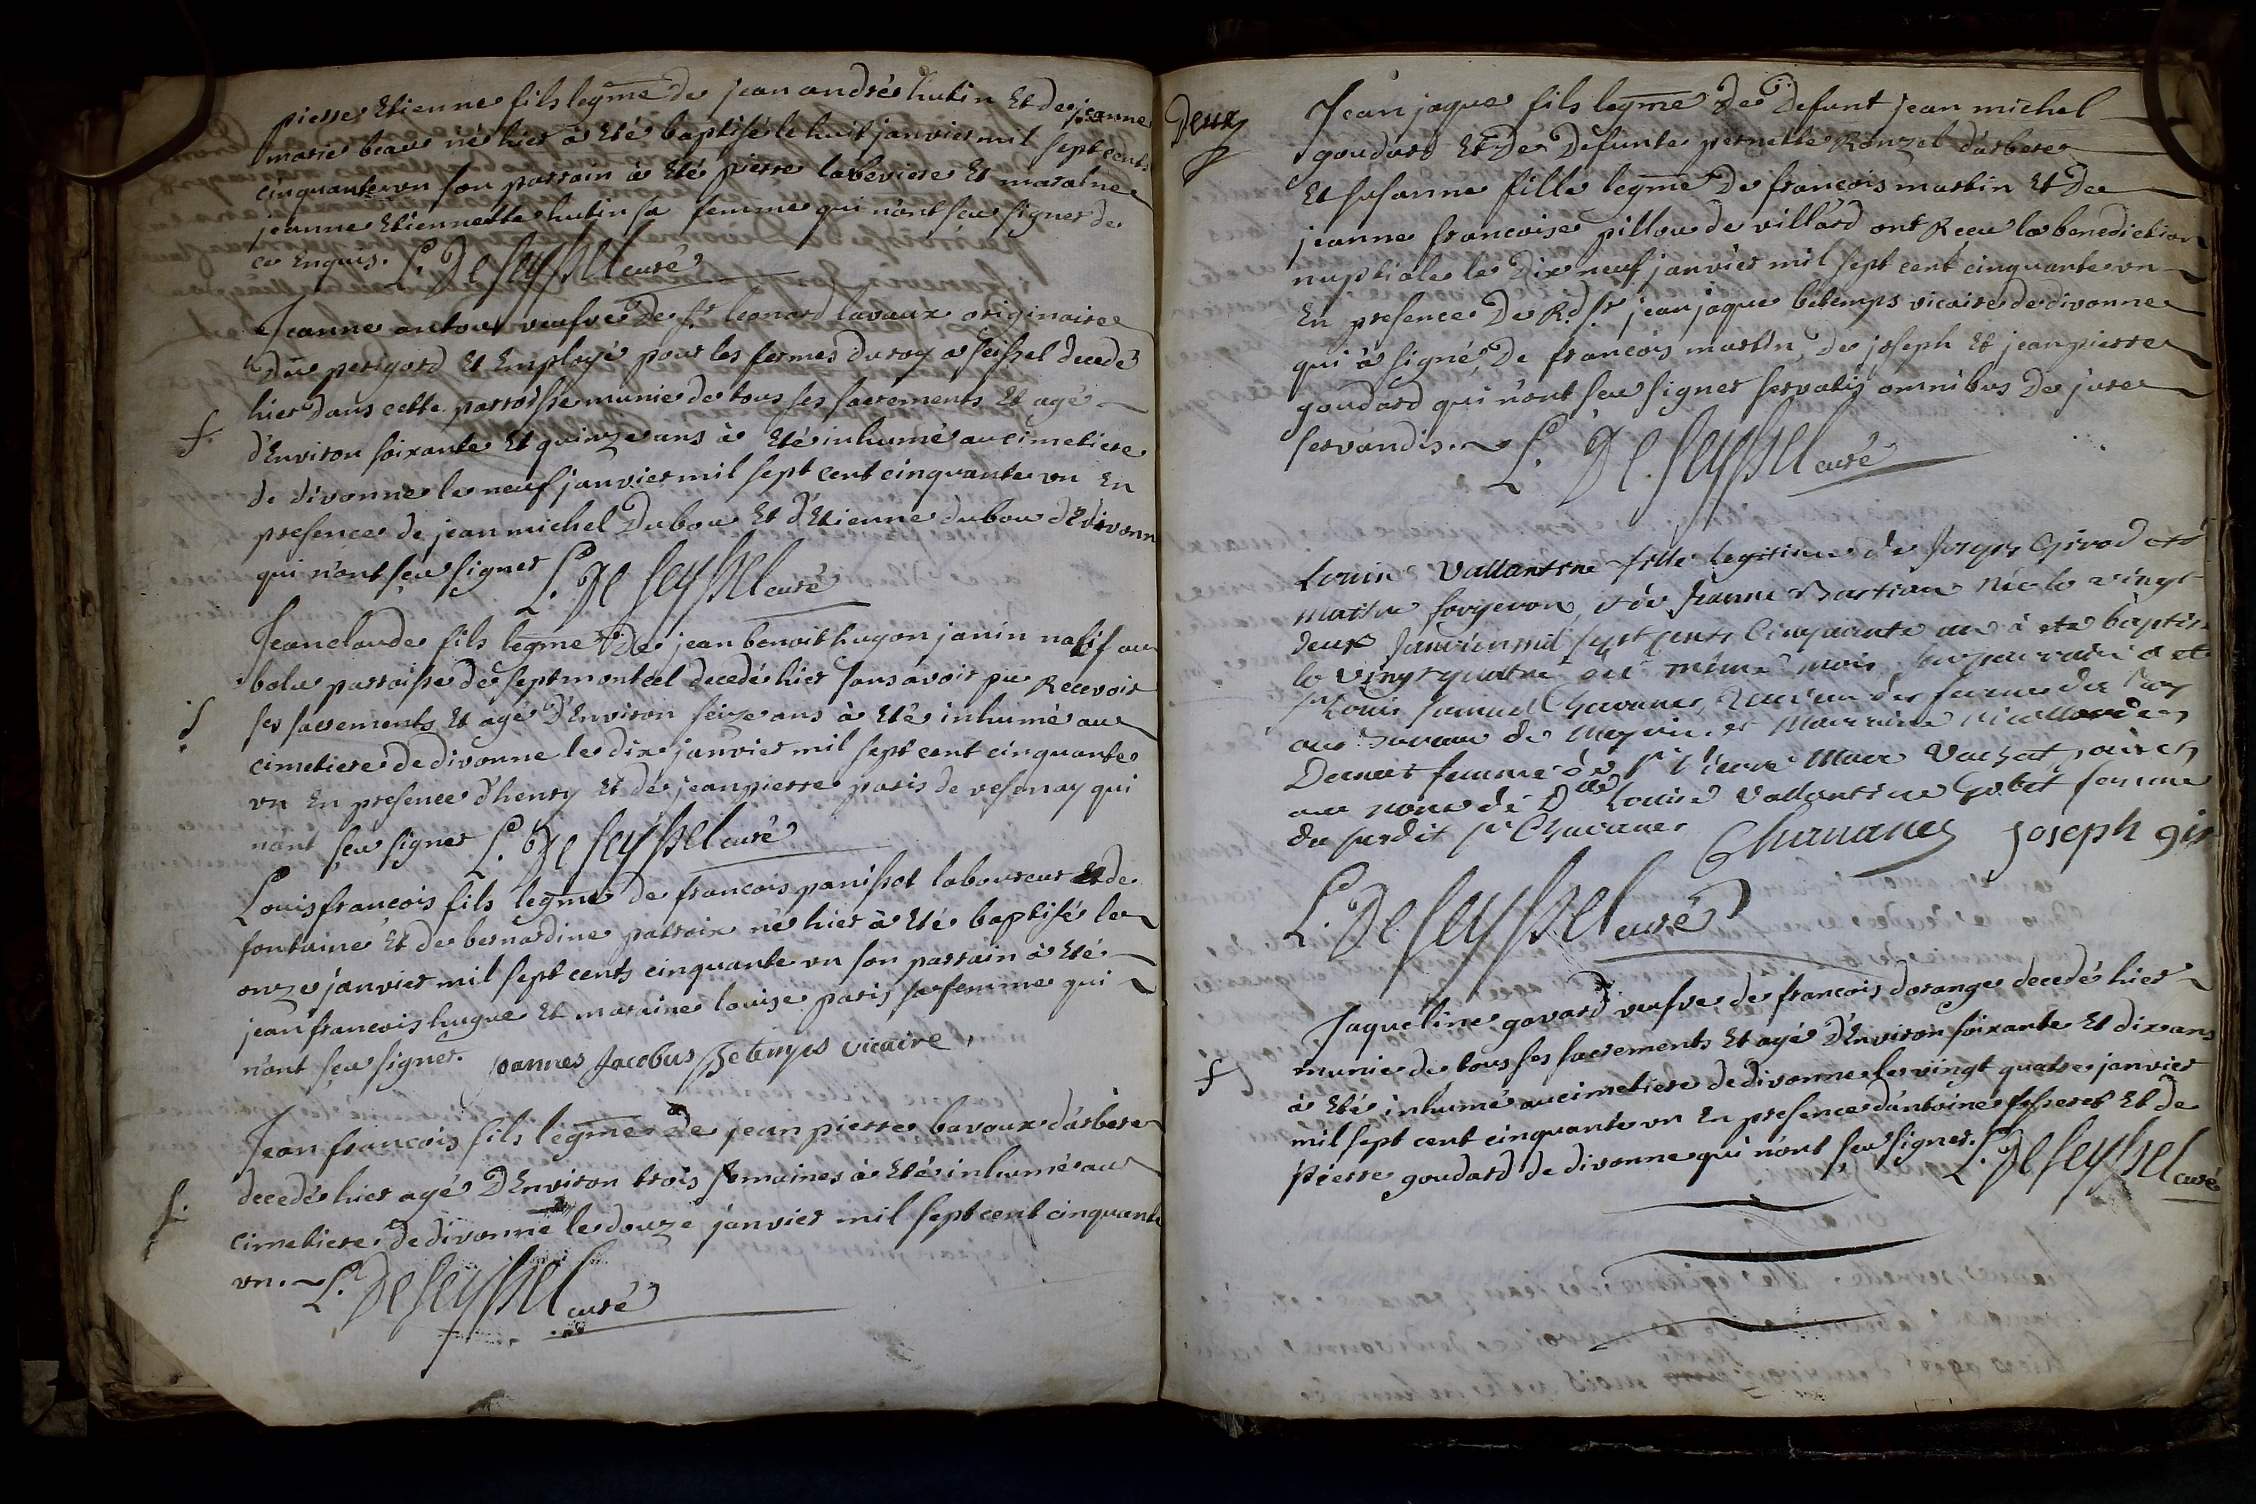 pierre Etienne fils legme de jean andré hutin Et de jeanne
marie beau né hier à Eté baptisé le huit janvier mil sept cents
cinquante un son parrain à Eté pierre labeviere Et maraine
jeanne Etiennette hutin sa femme qui n'ont seu signer de
ce Enquis. L. De Seyssel curé
Jeanne antou veufve de Sr leonard lavaux originaire
du perigord Et Employé pour les fermes du roy a seissel decedé
hier dans cette parroisse munie de tous ses sacrements Et agé
f.
d'Environ soixante Et quinze ans à Eté inhumé au cimetiere
de divonne le neuf janvier mil sept cent cinquante un En
presence de jean michel Dubou Et d'Etienne dubou de divonne
qui n'ont seu signer L. De Seyssel curé
Jean claude fils legme De jean benoit hugon janin natif au
bolu parroisse de septmontcel decedé hier sans avoir pu Recevoir
f
ses sacrements Et agé D'Environ seize ans à Eté inhumé au
cimetiere de divonne le dix janvier mil sept cent cinquante
un En presence d'henry Et de jean pierre paris de vesenay qui
n'ont seu signer L. De Seyssel curé
Louis francois fils legme de francois panissot laboureur Et de
fontaine Et de bernardine parraix né hier à Eté baptisé le
onze janvier mil sept cents cinquante un son parrain à Eté
jean francois hugue Et maraine louise paris sa femme qui
n'ont seu signer. Joannes Jacobus Betemps vicaire.
Jean francois fils legme De jean pierre bavoux d'arbere
decedé hier agé D'Environ trois semaines à Eté inhumé au
f.
cimetiere De divonne le douze janvier mil sept cent cinquante
un. L. De Seyssel curé
Deux
Jean jaque fils legme De Defunt jean michel
goudard Et De Defunte pernette Ronzel d'arbere
Et susanne fille legme De francois martin Et De
jeanne francoise pillou de villard ont Receu la benediction
nuptiale le Dix neuf janvier mil sept cent cinquante un
En presence De Rd Sr jean jaque betemps vicaire de divonne
qui à signé, De francois martin, De joseph Et jean pierre
goudard qui n'ont seu signer servatis omnibus De jure
servandis. L. De Seyssel curé
Louise Vallantine fille legitime de Joseph Girod
maitre forgeron et de Jeanne Bastian née le vingt
deux Janvier mil sept cents Cinquante un à ete baptisé
le vingt quatre du même mois son parrain a eté
Sr Louis Samuel Chavanes Receveur des fermes du Roy
au Bureau de et Marraine
femme de Sr Marc Vachat
au nom de Dlle Louise Vallantine Gobet femme
du susdit Sr Chavanes Chavanes Joseph gir
L. De Seyssel curé
Jaqueline gavard veufve de francois dorange decedé hier
munie de tous ses sacrements Et agé D'Environ soixante Et dix ans
f
à Eté inhumé au cimetiere de divonne le vingt quatre janvier
mil sept cent cinquante un En presence d'antoine Et de
pierre goudard de divonne qui n'ont seu signer. L. De Seyssel curé